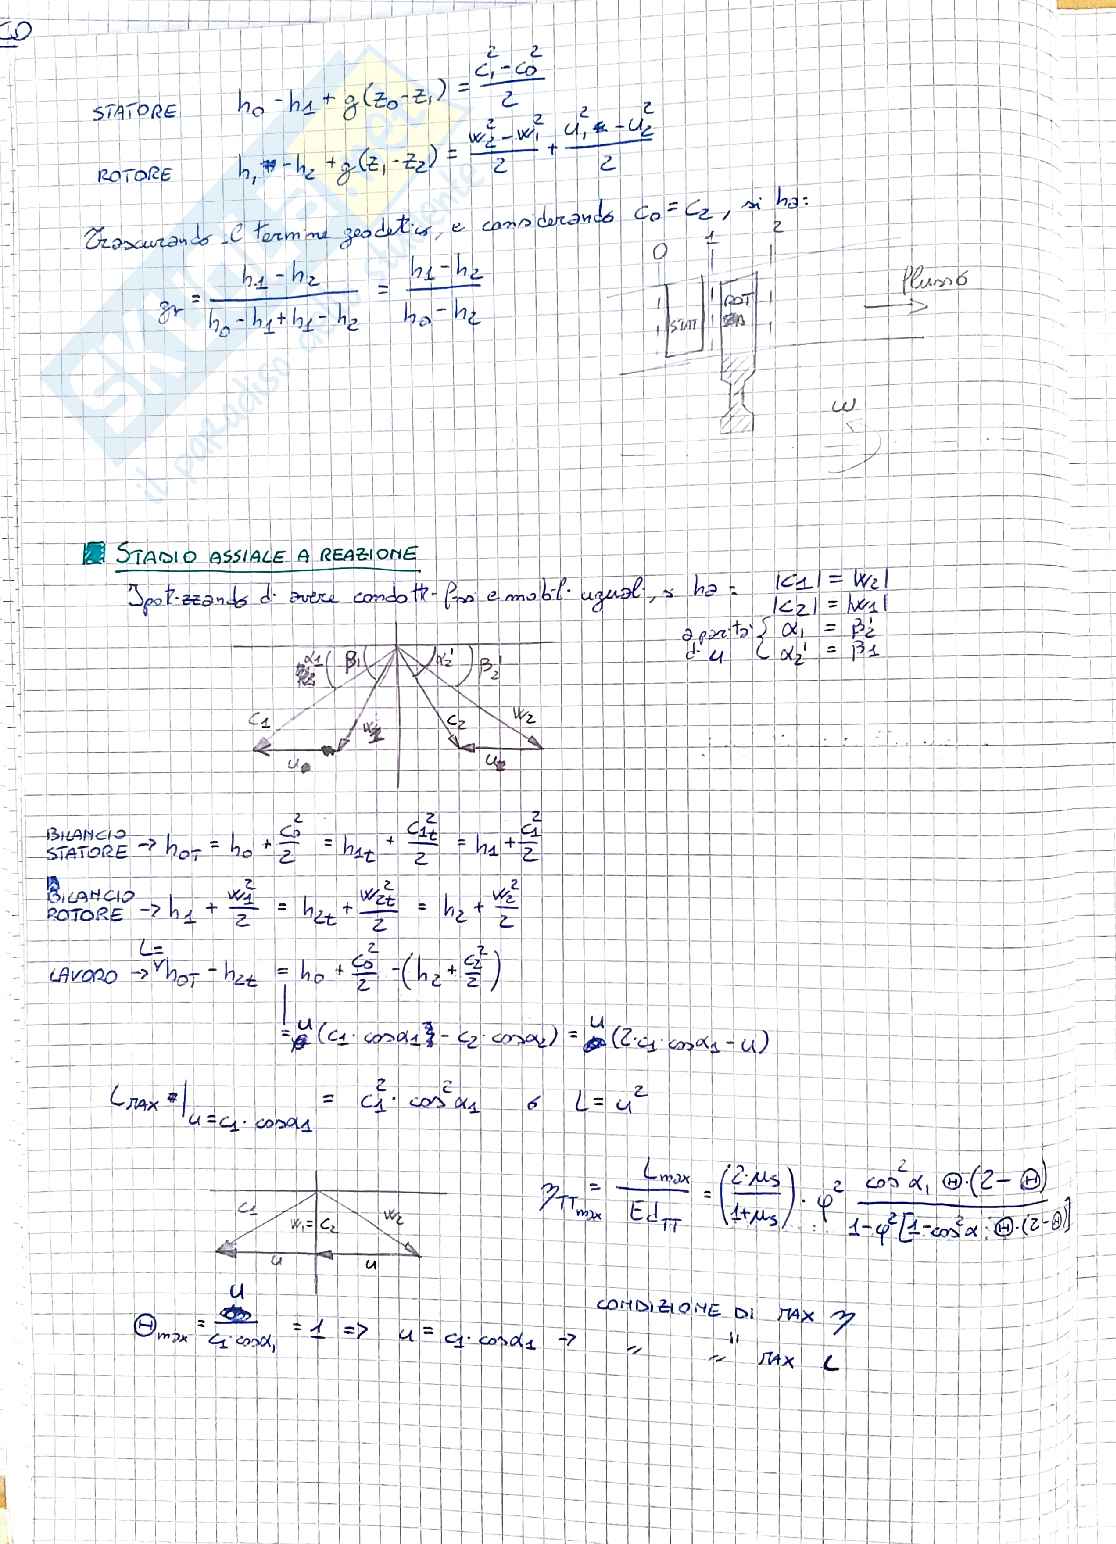 STATORE h₀ - h₁ + g(z₀ - z₁) = (c₁² - c₀²)/2
ROTORE h₁ - h₂ + g(z₁ - z₂) = (w₂² - w₁²)/2 + (u₁² - u₂²)/2
Trascurando il termine geodetico, e considerando c₀ = c₂, si ha:
gr = (h₁ - h₂)/(h₀ - h₁ + h₁ - h₂) = (h₁ - h₂)/(h₀ - h₂)
0 1 2
STAT
ROT
flusso
ω
STADIO ASSIALE A REAZIONE
Ipotizzando di avere condotti fissi e mobili uguali, si ha: |c₁| = |w₂|
|c₂| = |w₁|
a parità { α₁ = β₂'
di u { α₂' = β₁
α₁ β₁ α₂' β₂'
c₁ w₁ c₂ w₂
u u
BILANCIO
STATORE → h₀T = h₀ + c₀²/2 = h₁t + c₁t²/2 = h₁ + c₁²/2
BILANCIO
ROTORE → h₁ + w₁²/2 = h₂t + w₂t²/2 = h₂ + w₂²/2
L=
LAVORO → h₀T - h₂t = h₀ + c₀²/2 - (h₂ + c₂²/2)
= u (c₁·cosα₁ - c₂·cosα₂) = u (2·c₁·cosα₁ - u)
LMAX = |u=c₁·cosα₁ = c₁²·cos²α₁ o L = u²
c₁ w₁=c₂ w₂
u u
ηTTmax = Lmax/EdTT = (2·μs/(1+μs))·φ² cos²α₁ Θ·(2-Θ)/(1-φ²[1-cos²α·Θ·(2-Θ)])
Θmax = u/(c₁·cosα₁) = 1 => u = c₁·cosα₁ → CONDIZIONE DI MAX η
" " MAX L
SKUOLA.net
il paradiso dello studente